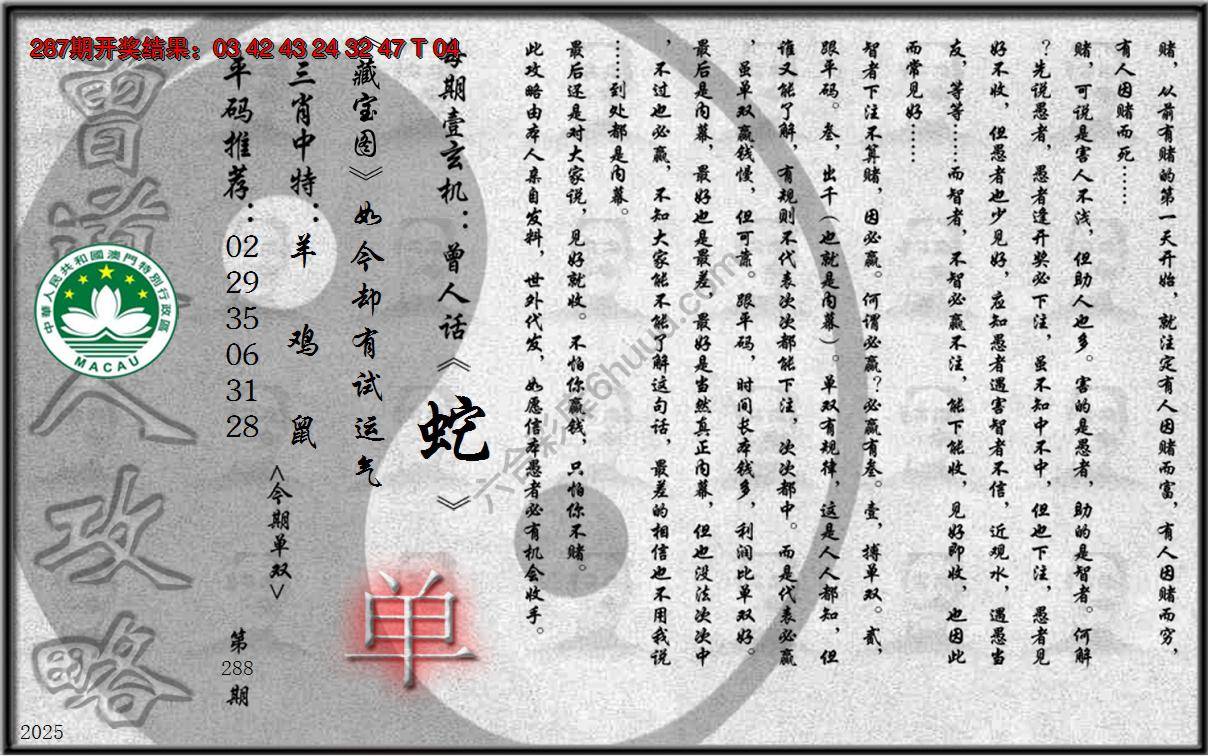 287期开奖结果：03 42 43 24 32 47 T 04
赌，从前有赌的第一天开始，就注定有人因赌而富，有人因赌而穷，
有人因赌而死……
赌，可说是害人不浅，但助人也多。害的是愚者，助的是智者。何解
？先说愚者，愚者逢开奖必下注，虽不知中不中，但也下注，愚者见
好不收，但愚者也少见好，应知愚者遇害智者不信，近观水，遇愚当
友，等等……而智者，不智必赢不注，能下能收，见好即收，也因此
而常见好……
智者下注不算赌，因必赢。何谓必赢？必赢有叁。壹，搏单双。贰，
跟平码。叁，出千（也就是内幕）。单双有规律，这是人人都知，但
谁又能了解，有规则不代表次次都能下注，次次都中。而是代表必赢
，虽单双赢钱慢，但可靠。跟平码，时间长本钱多，利润比单双好。
最后是内幕，最好也是最差，最好是当然真正内幕，但也没法次次中
，不过也必赢，不知大家能不能了解这句话，最差的相信也不用我说
……到处都是内幕。
最后还是对大家说，见好就收。不怕你赢钱，只怕你不赌。
此攻略由本人亲自发料，世外代发，如愿信本愚者必有机会收手。
每期壹玄机：曾人话《蛇》
《藏宝图》如今却有试运气
三肖中特：羊 鸡 鼠
<今期单双>
单
平码推荐：02 29 35 06 31 28
第288期
曾道人攻略
中華人民共和國澳門特別行政區
MACAU
六合彩库6huuu.com
2025